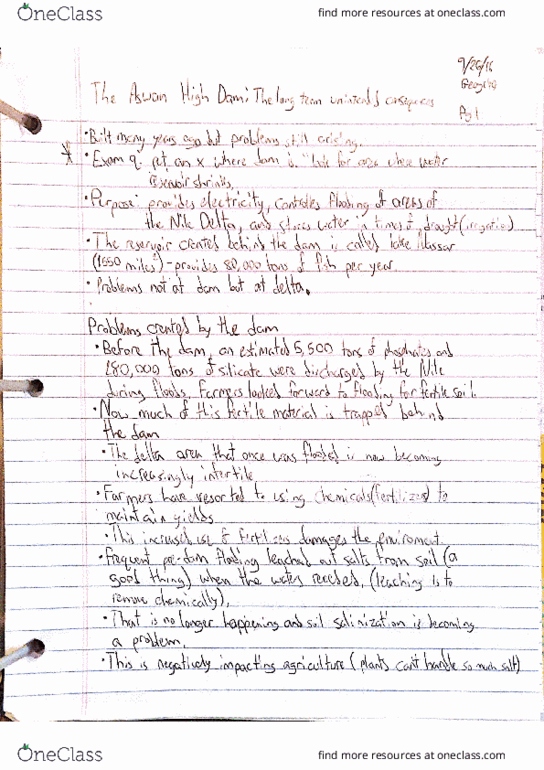 OneClass
find more resources at oneclass.com
9/26/16
Pg 1
The Aswan High Dam: The long term
• Built many years ago but problems still arising.
• Exam q: put an x where dam is. look for area where water
reservoir shrinks.
• Purpose: provides electricity, controlles flooding of areas of
the Nile Delta, and stores water in times of drought (irrigation)
• The reservoir created behind the dam is called lake Nassar
(1550 miles²) - provides 80,000 tons of fish per year.
• Problems not at dam but at delta.
Problems created by the dam
• Before the dam, an estimated 5,500 tons of phosphates and
280,000 tons of silicate were discharged by the Nile
during floods. Farmers looked forward to flooding for fertile soil.
• Now much of this fertile material is trapped behind
the dam
• The delta area that once was flooded is now becoming
increasingly infertile
• Farmers have resorted to using chemicals (fertilizers) to
maintain yields
• This increased use of fertilizers damages the enviroment.
• Frequent pre-dam flooding leached out salts from soil (a
good thing) when the water receeded, (leaching is to
remove chemically),
• That is no longer happening and soil salinization is becoming
a problem.
• This is negatively impacting agriculture (plants can't handle so much salt)
OneClass
find more resources at oneclass.com